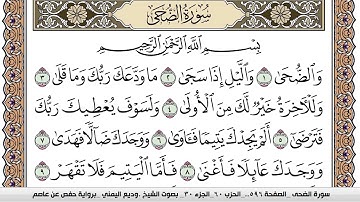 سُورَةُ الضُّحَى
بِسْمِ اللَّهِ الرَّحْمَٰنِ الرَّحِيمِ
وَالضُّحَىٰ ١ وَالَّيْلِ إِذَا سَجَىٰ ٢ مَا وَدَّعَكَ رَبُّكَ وَمَا قَلَىٰ ٣
وَلَلْآخِرَةُ خَيْرٌ لَّكَ مِنَ الْأُولَىٰ ٤ وَلَسَوْفَ يُعْطِيكَ رَبُّكَ
فَتَرْضَىٰ ٥ أَلَمْ يَجِدْكَ يَتِيمًا فَآوَىٰ ٦ وَوَجَدَكَ ضَالًّا فَهَدَىٰ ٧
وَوَجَدَكَ عَائِلًا فَأَغْنَىٰ ٨ فَأَمَّا الْيَتِيمَ فَلَا تَقْهَرْ ٩
سورة الضحى _الصفحة ٥٩٦_ الحزب ٦٠_ الجزء ٣٠ _ بصوت الشيخ _وديع اليمني _برواية حفص عن عاصم